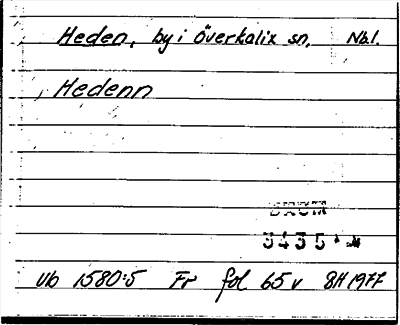 Heden, by i Överkalix sn, Nb.l.
Hedenn
DAUM
3435
Vb 1580:5 Fr fol 65v 8H 1977